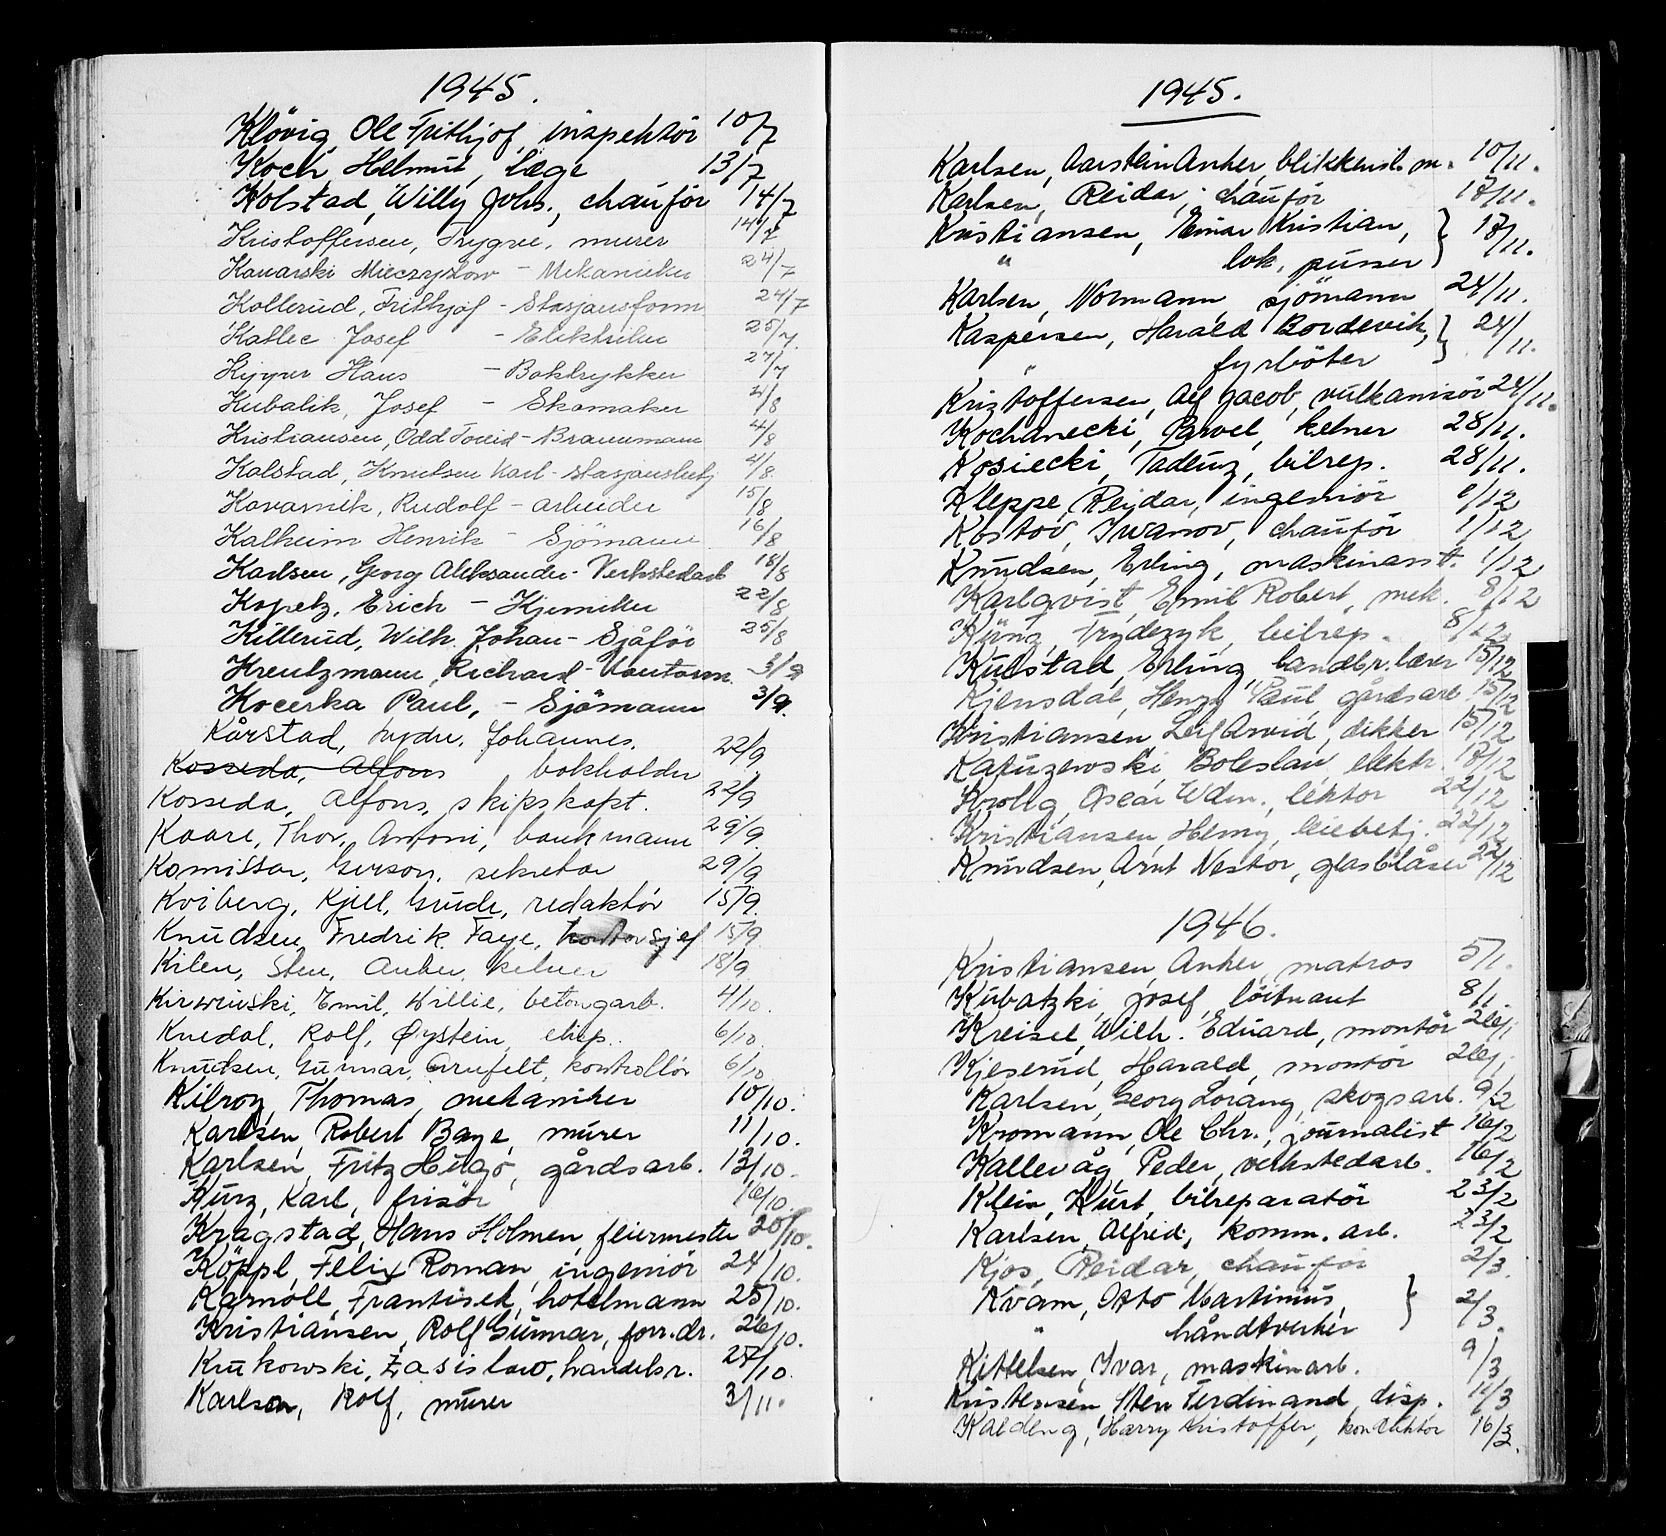 1945.
Klövig, Ole Frithjof, inspektör 10/7
Koch Helmut, læge 13/7
Kolstad, Willy Johs., chauför 14/7
Kristoffersen, Trygve, murer 14/7
Kanarski Mieczyzlow - Mekaniker 24/7
Kollerud, Frithjof - Stasjonsform 24/7
Katlec Josef - Elektriker 25/7.
Hans - Boktrykker 27/7
Kubalik, Josef - Skomaker 4/8
Kristiansen, Odd - Brannmann 4/8
Kolstad, Knutsen Karl - stasjonsbetj 4/8.
Rudolf - arbeider 15/8
Kalheim Henrik - Sjömann 16/8
Karlsen, Georg Aleksander - Verkstedarb 18/8
Kopetz, Erich - Kjemiker 22/8
Killerud, Wilh. Johan - Sjåför 25/8
Kreutzmann, Richard - Kontorm. 3/9
Kocerka Paul, - Sjömann 3/9.
Kårstad, Johannes.
Kosseda, Alfons bokholder 22/9
Kosseda, Alfons, skipskapt. 22/9
Kaare, Thor, Antoni, bankmann 29/9.
Komissar, Gerson, sekretær 29/9
Kviberg, Kjell, Gude, redaktör 15/9.
Knudsen, Fredrik Faye, kontorsjef 15/9.
Kilen, Sten, Anker, kelner 18/9
Emil, Willie, betongarb. 4/10.
Knedal, Rolf, Øystein, eksp. 6/10.
Knutsen, Gunnar, Arnfelt, kontrollör 6/10
Kilroy, Thomas, mekaniker 10/10.
Karlsen, Robert Baye, murer 11/10.
Karlsen, Fritz Hugo, gårdsarb. 13/10.
Kurz, Karl, frisör 16/10.
Kragstad, Hans Holmen, feiermester 20/10.
Köppl, Felix Roman, ingeniör 24/10.
Karnoll, Frantisek, hotelmann 25/10.
Kristiansen, Rolf Gunnar, forr.dr. 26/10.
Krukowski, Zasislaw, handelsr. 27/10.
Karlsen, Rolf, murer 3/11.
1945.
Karlsen, Aarstein Anker, blikkensl. m. 10/11.
Karlsen, Reidar, chauför 17/11.
Kristiansen, Einar Kristian, } 17/11.
" lok. pusser
Karlsen, Normann, sjömann 24/11.
Kaspersen, Harald Bordevik, } 24/11.
" fyrböter
Kristoffersen, Alf Jacob, vulkanisör 24/11.
Kochanecki, Pavel, kelner 28/11.
Kosiecki, Tadeuz, bilrep. 28/11.
Kleppe, Reidar, ingeniör 1/12
Kostov, Iwanov, chauför 1/12
Knudsen, Erling, maskinasst. 1/12
Karlqvist, Emil Robert, mek. 8/12
Küng, Frydezyk, bilrep. 8/12
Kulstad, Erling, landbr.lærer 15/12
Kjensdal, Henry Paul, gårdsarb. 15/12
Kristiansen Leif Arvid, dikker 15/12
Kafuzewski, Boleslau, elektr. 18/12
Krolig, Oscar Wdm., lektor 22/12
Kristiansen, Henry, leiebetj. 22/12
Knudsen, Arnt Nestor, glasblåser 22/12
1946.
Kristiansen, Anker, matros 5/1.
Kubatzki, Josef, löitnant 8/1.
Kreisel, Wilh. Eduard, montör 26/1
Kjeserud, Harald, montör 26/1
Karlsen, Georg Lorang, skogsarb. 9/2
Kromann, Ole Chr., journalist 16/2
Kallevåg, Peder, verkstedarb. 16/2
Klein, Kurt, bilreparatör 23/2
Karlsen, Alfred, komm. arb. 23/2
Kjos, Reidar, chauför 2/3.
Kvam, Otto Martinius, } 2/3.
" håndverker
Kittelsen, Ivar, maskinarb. 9/3
Kristensen, Sten Ferdinand, disp. 11/3
Harry Kristoffer, konduktör 16/3.